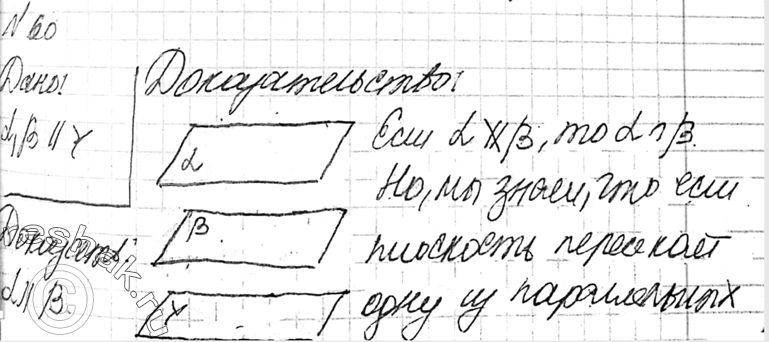 № 60
Дано:
α, β ∥ γ
Доказать:
α ∥ β.
Доказательство:
α
β
γ
Если α ∦ β, то α ∩ β.
Но, мы знаем, что если
плоскость пересекает
одну из параллельных